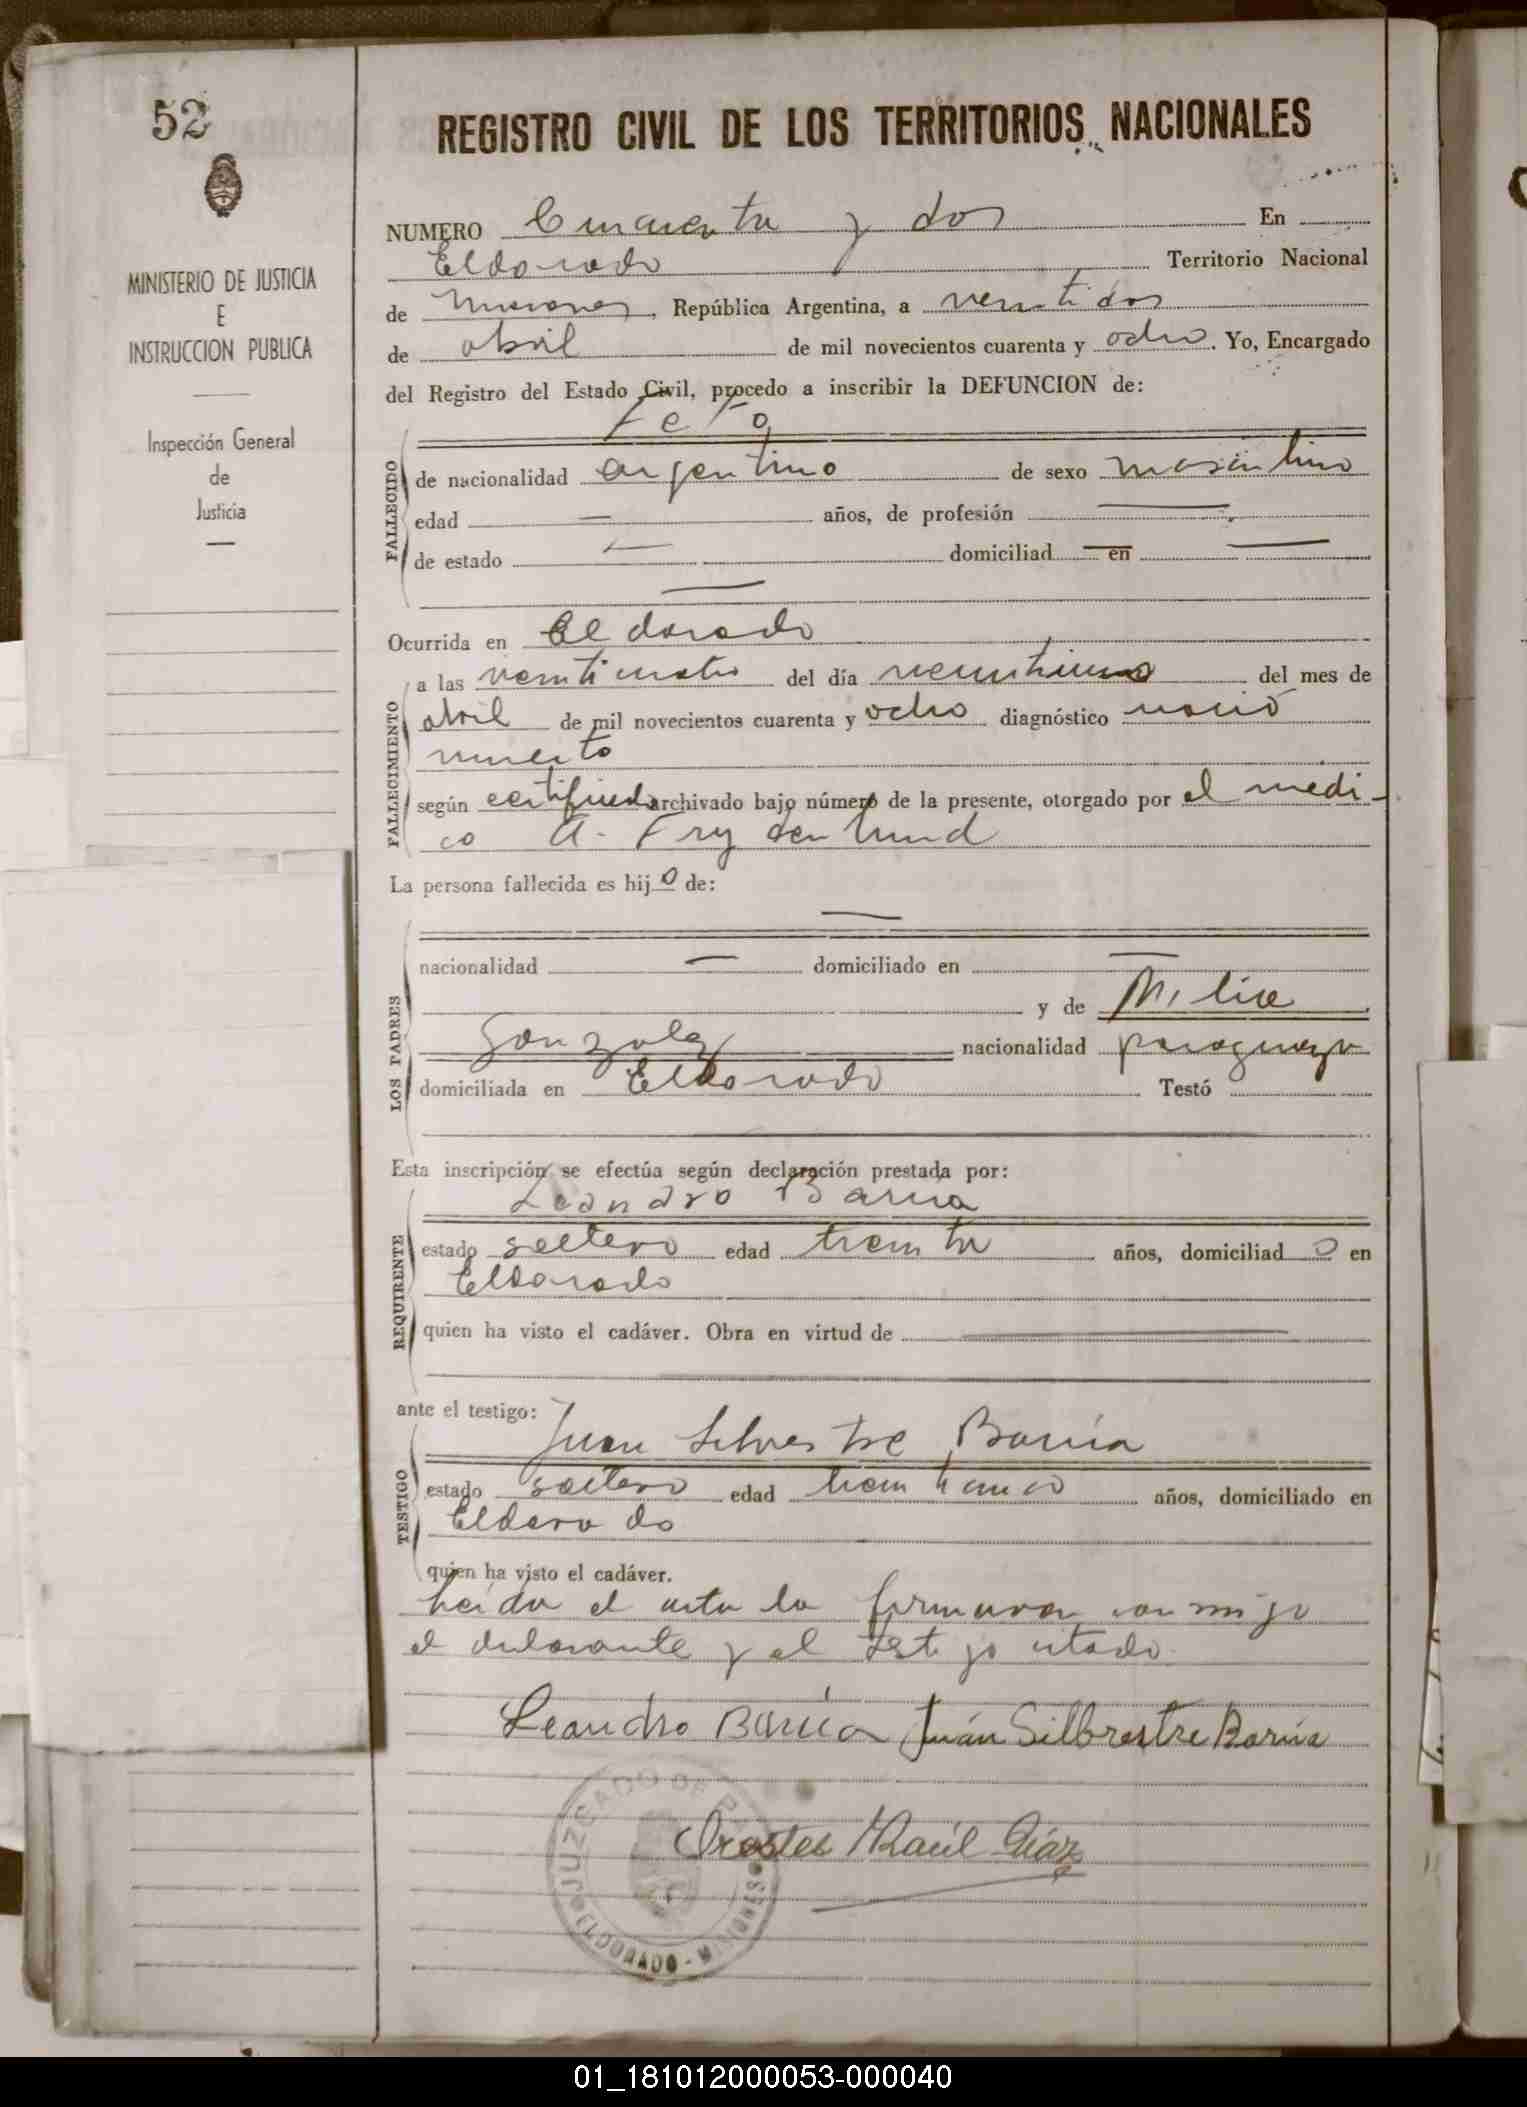 52
REGISTRO CIVIL DE LOS TERRITORIOS NACIONALES
MINISTERIO DE JUSTICIA
E
INSTRUCCION PUBLICA
Inspección General
de
Justicia
NUMERO Cincuenta y dos En
Eldorado Territorio Nacional
de Misiones, República Argentina, a veintidos
de abril de mil novecientos cuarenta y ocho. Yo, Encargado
del Registro del Estado Civil, procedo a inscribir la DEFUNCION de:
Feto
FALLECIDO
de nacionalidad argentino de sexo masculino
edad — años, de profesión —
de estado — domiciliad — en —
—
Ocurrida en Eldorado
FALLECIMIENTO
a las veinticuatro del día veintiuno del mes de
abril de mil novecientos cuarenta y ocho diagnóstico nació
muerto
según certificado archivado bajo número de la presente, otorgado por el medi-
co A. Frydenlund
La persona fallecida es hijo de:
—
LOS PADRES
nacionalidad — domiciliado en —
y de
Gonzalez nacionalidad paraguaya
domiciliada en Eldorado Testó
Esta inscripción se efectúa según declaración prestada por:
Leandro Barúa
REQUIRENTE
estado soltero edad treinta años, domiciliado en
Eldorado
quien ha visto el cadáver. Obra en virtud de —
ante el testigo:
Juan Silvestre Barúa
TESTIGO
estado soltero edad treinticinco años, domiciliado en
Eldorado
quien ha visto el cadáver.
Leída el acta la firmaron conmigo
el declarante y el testigo citado.
Leandro Barúa Juán Silbrestre Barúa
Orestes Raúl Díaz
JUZGADO DE P
ELDORADO - MISIONES
01_181012000053-000040